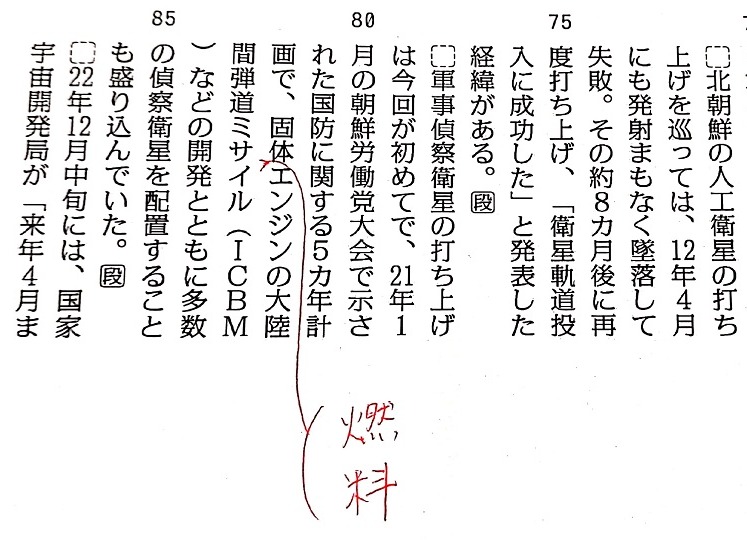 75
80
85
北朝鮮の人工衛星の打ち
上げを巡っては、12年4月
にも発射まもなく墜落して
失敗。その約8カ月後に再
度打ち上げ、「衛星軌道投
入に成功した」と発表した
経緯がある。段
軍事偵察衛星の打ち上げ
は今回が初めてで、21年1
月の朝鮮労働党大会で示さ
れた国防に関する5カ年計
画で、固体エンジンの大陸
間弾道ミサイル（ICBM
）などの開発とともに多数
の偵察衛星を配置すること
も盛り込んでいた。段
22年12月中旬には、国家
宇宙開発局が「来年4月ま
燃料